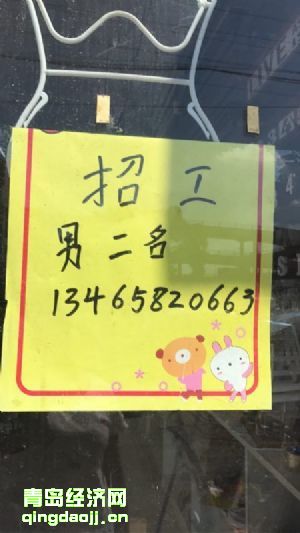 招工
男二名
13465820663
青岛经济网
qingdaojj.cn